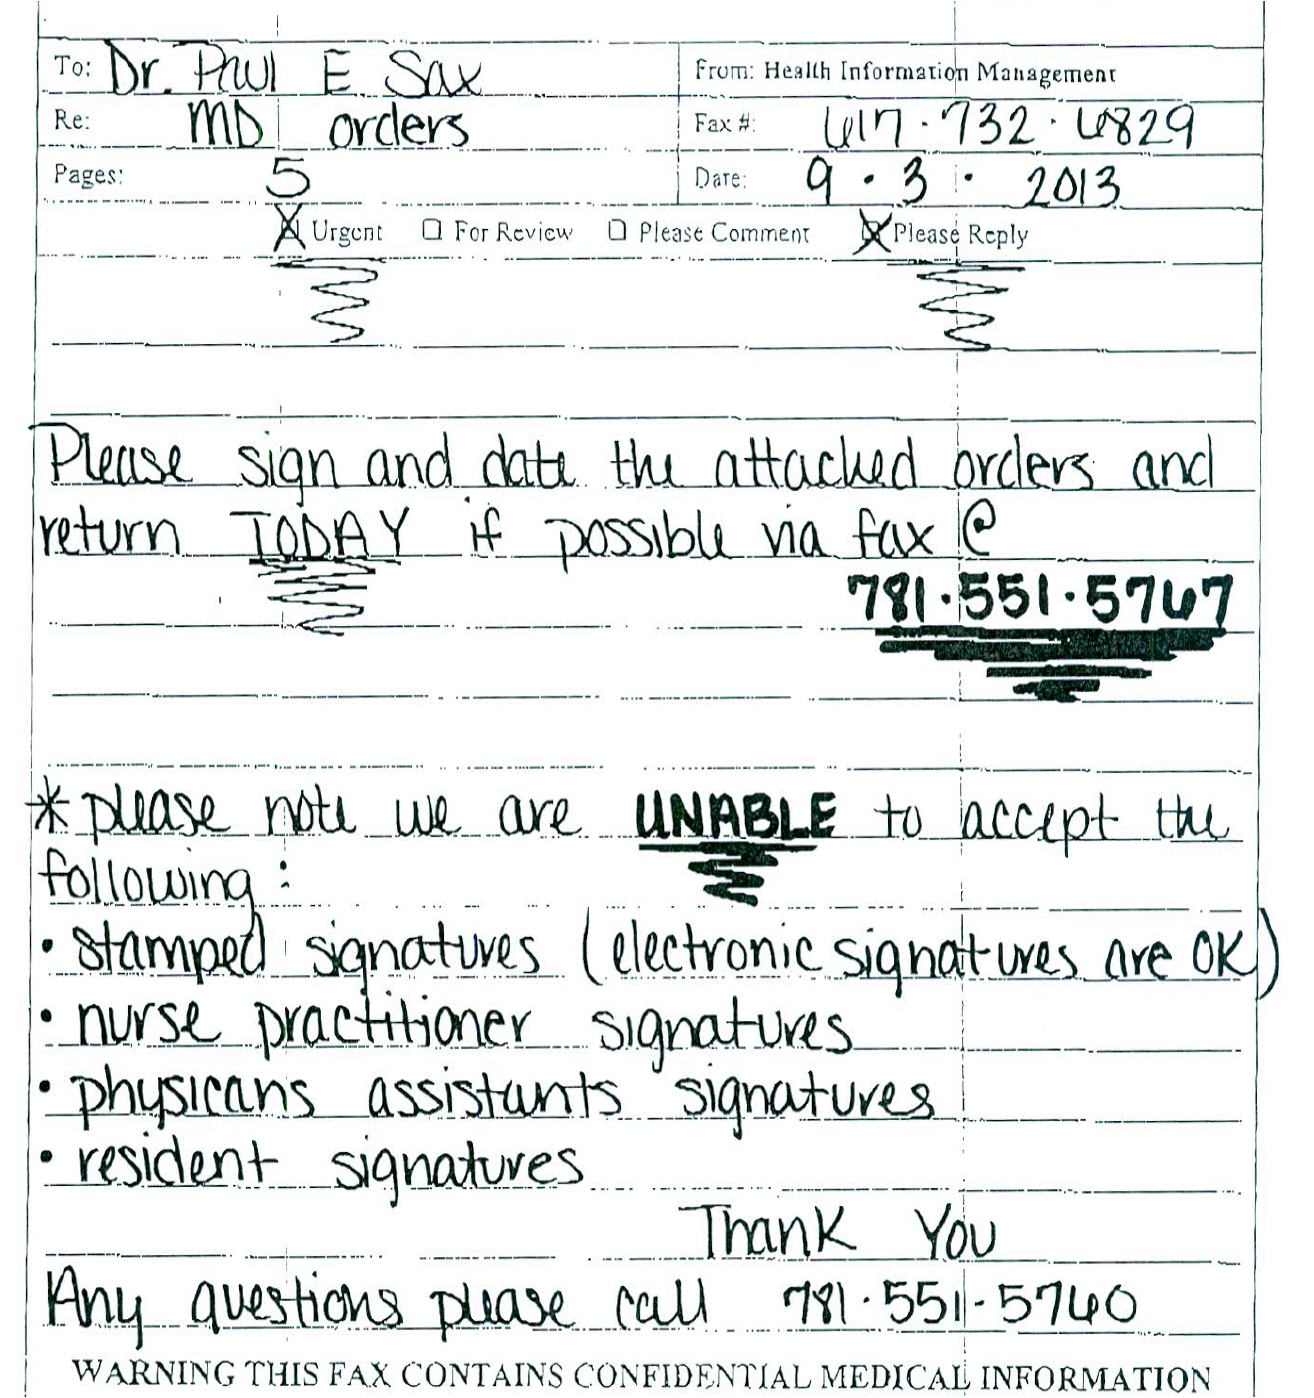 To: Dr. Paul E Sax From: Health Information Management
Re: MD orders Fax #: 617·732·6829
Pages: 5 Date: 9·3·2013
Urgent For Review Please Comment Please Reply
Please sign and date the attached orders and
return TODAY if possible via fax @
781·551·5767
*please note we are UNABLE to accept the
following:
• stamped signatures (electronic signatures are OK)
• nurse practitioner signatures
• physicans assistants signatures
• resident signatures
Thank You
Any questions please call 781·551-5760
WARNING THIS FAX CONTAINS CONFIDENTIAL MEDICAL INFORMATION